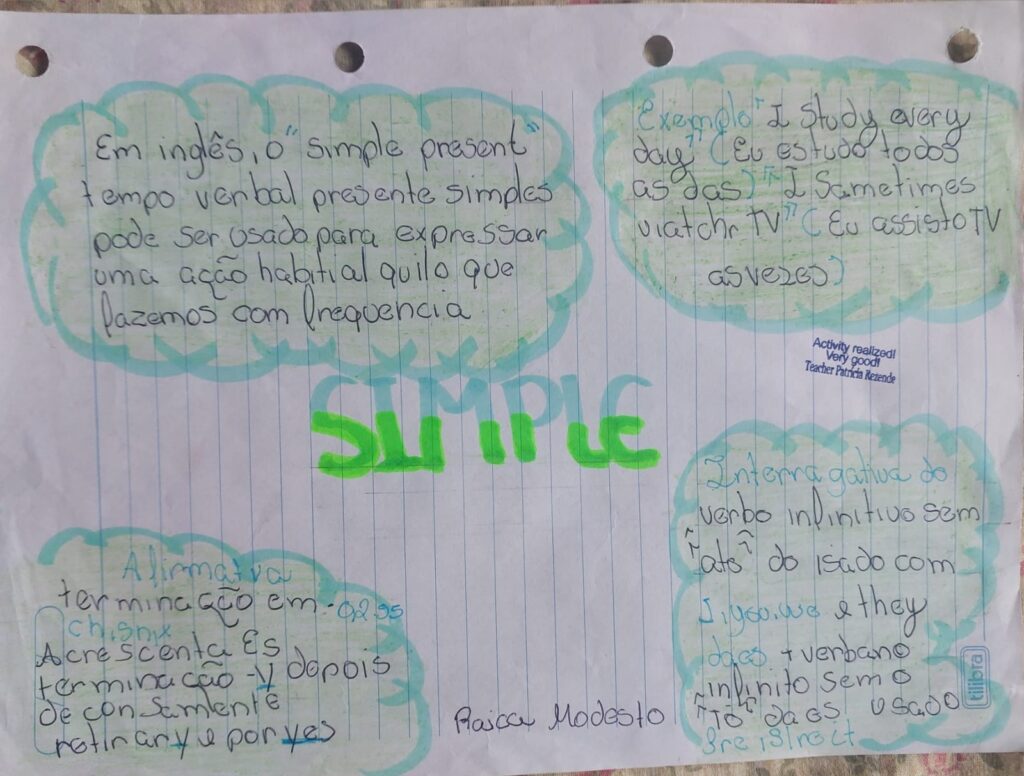 Em inglês, o "simple present"
tempo verbal presente simples
pode ser usado para expressar
uma ação habitial quilo que
fazemos com frequencia
Exemplo "I Study every
day" (Eu estudo todos
as das) "I Sametimes
viatchr TV" (Eu assisto TV
as vezes)
Activity realized!
Very good!
Teacher Patricia Rezende
SIMPLE
Afirmatva
terminação em
ch, sh, x
Acrescenta Es
terminação -y depois
de consamente
retirar y e por yes
Interragativa do
verbo infinitivo sem
"ato" do isado com
I, you, we e they
daes + verbano
infinito sem o
"To" daes usado
Raica Modesto
tilibra